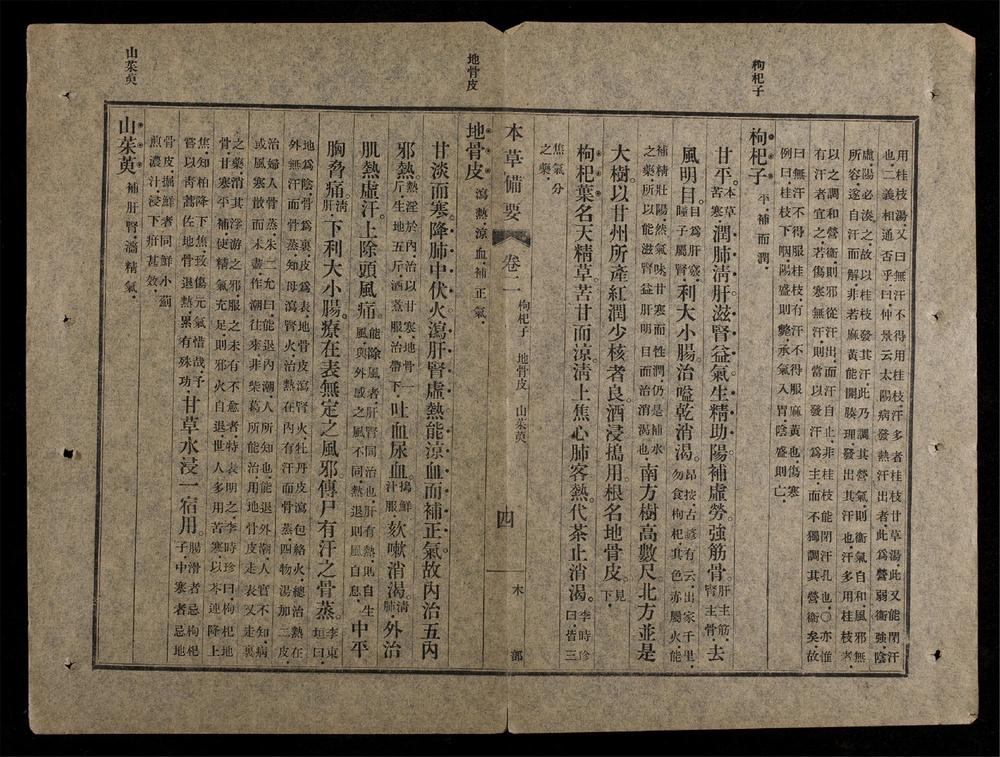 枸杞子
地骨皮
山茱萸
用桂枝湯又曰無汗不得用桂枝汗多者桂枝甘草湯此又能閉汗
也二義相通否乎曰仲景云太陽病發熱汗出者此爲營弱衞強陰
虛陽必湊之故以桂枝發其汗此乃調其營氣則衞氣自和風邪無
所容遂自汗而解非若麻黃能開腠理發出其汗也汗多用桂枝者
以之調和營衞則邪從汗出而汗自止非桂枝能閉汗孔也〇亦惟
有汗者宜之若傷寒無汗則當以發汗爲主而不獨調其營衞矣故
曰無汗不得服桂枝有汗不得服麻黃也傷寒
例曰桂枝下咽陽盛則斃承氣入胃陰盛則亡
枸杞子 平補而潤
甘平本草苦寒潤肺淸肝滋腎益氣生精助陽補虛勞強筋骨肝主筋腎主骨去
風明目目爲肝竅瞳子屬腎利大小腸治嗌乾消渴昂按古諺有云出家千里勿食枸杞其色亦屬火能
補精壯陽然氣味甘寒而性潤仍是補水之藥所以能滋腎益肝明目而治消渴也南方樹高數尺北方並是
大樹以甘州所產紅潤少核者良酒浸搗用根名地骨皮見下
枸杞葉名天精草苦甘而涼淸上焦心肺客熱代茶止消渴李時珍曰皆三
焦氣分之藥
本草備要 卷二 枸杞子 地骨皮 山茱萸 四 木部
地骨皮 瀉熱涼血補正氣
甘淡而寒降肺中伏火瀉肝腎虛熱能涼血而補正氣故內治五內
邪熱熱淫於內治以甘寒地骨一斤生地五斤酒煑服治帶下吐血尿血搗鮮汁服欬嗽消渴淸肺外治
肌熱虛汗上除頭風痛能除風者肝腎同治也肝有熱則自生風與外感之風不同熱退則風自息中平
胸脅痛淸肝下利大小腸療在表無定之風邪傳尸有汗之骨蒸李東垣曰
地爲陰骨爲裏皮爲表地骨皮瀉腎火牡丹皮瀉包絡火總治熱在
外無汗而骨蒸知母瀉腎火治熱在內有汗而骨蒸四物湯加二皮
治婦人骨蒸朱二允曰能退內潮人所知也能退外潮人實不知病
或風寒散而未盡作潮往來非柴葛所能治用地骨皮走表又走裏
之藥消其浮游之邪服之未有不愈者特表明之李時珍曰枸杞地
骨甘寒平補使精氣充足則邪火自退世人多用苦寒以芩連降上
焦知柏降下焦致傷元氣惜哉予嘗以靑蒿佐地骨退熱累有殊功甘草水浸一宿用腸滑者忌枸杞子中寒者忌地
骨皮掘鮮者同鮮小薊
煎濃汁浸下疳甚效
山茱萸 補肝腎濇精氣